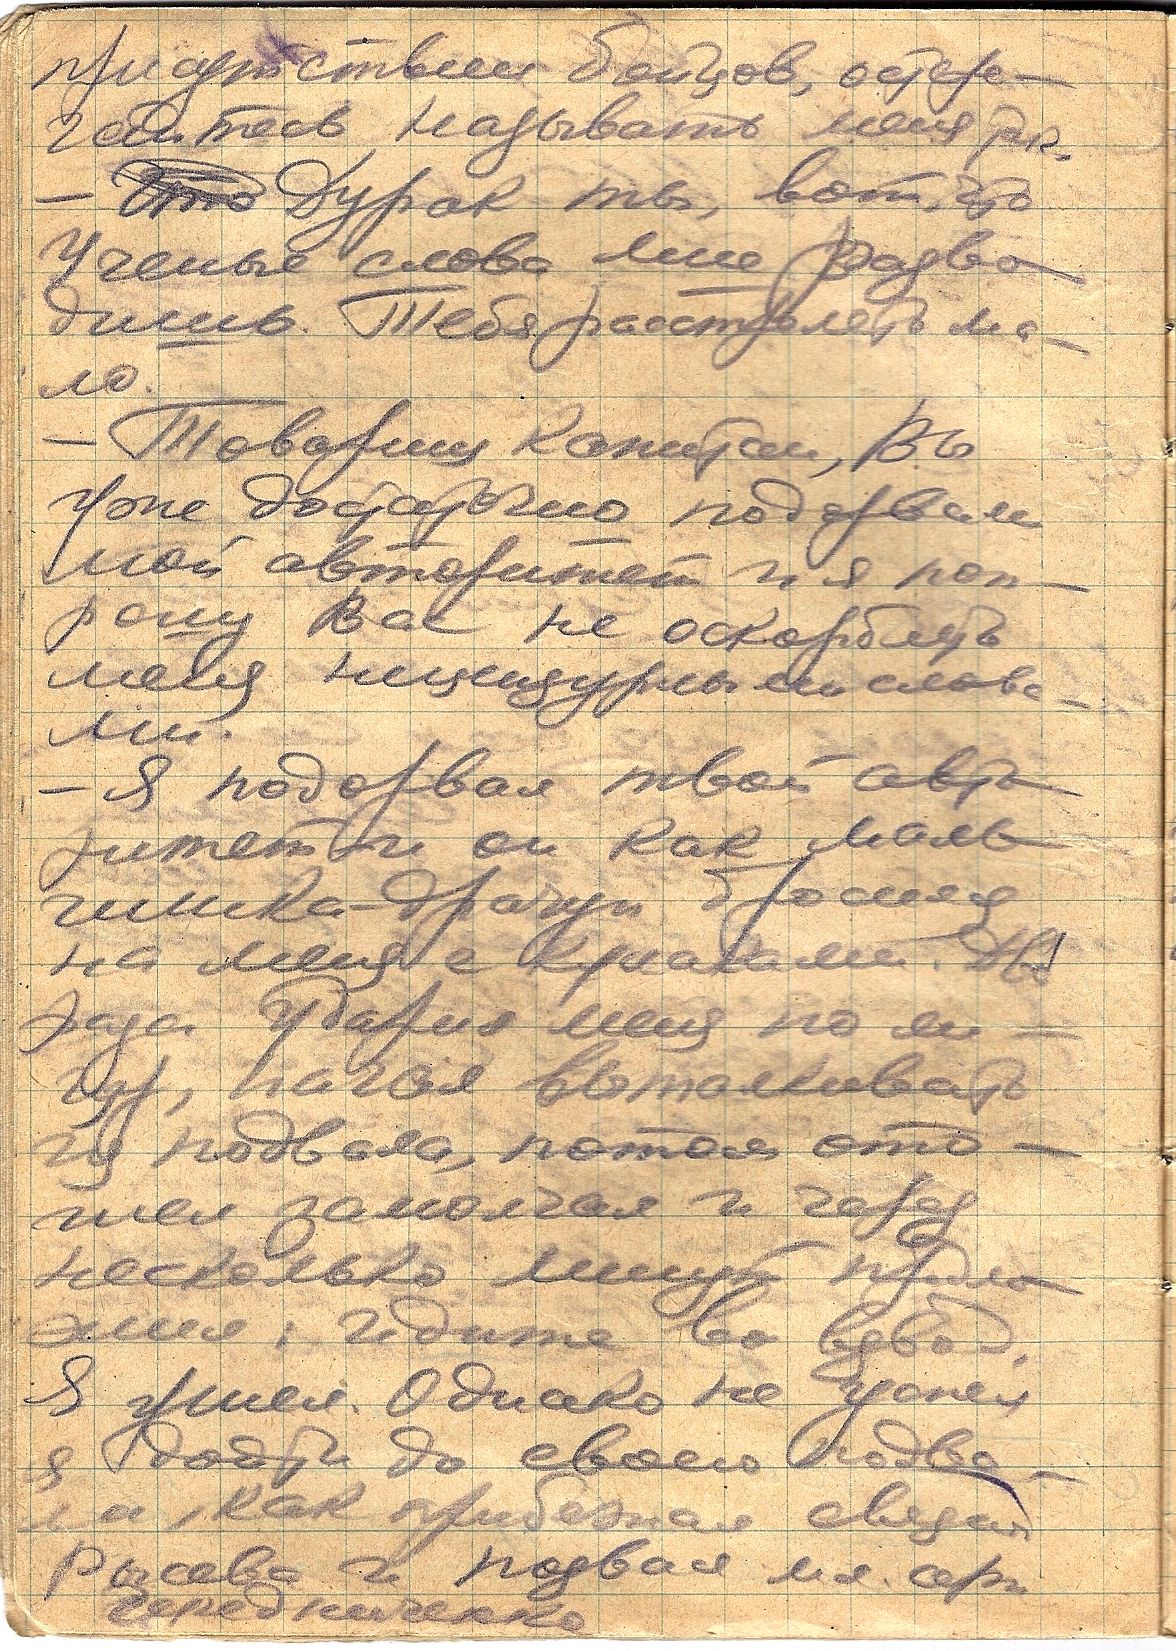 присутствии бойцов, остере-
гайтесь называть меня
- Дурак ты, вот что
Ученые слова мне разво
дишь. Тебя расстрелять ма-
ло.
- Товарищ Капитан, Вы
уже достаточно подорвали
мой авторитет и я поп-
рошу Вас не оскорблять
меня нецензурными слова-
ми.
- Я подорвал твой авто
ритет и он как маль
чишка-драчун бросился
на меня с кулаками. Два
раза ударил меня по ли-
цу, начал выталкивать
из подвала, потом ото-
шел замолчал и через
несколько минут предло
жил: идите во взвод.
Я ушел. Однако не успел
я дойти до своего подва-
ла, как прибежал связной
Рысева и позвал мл. серж.
Чередниченко